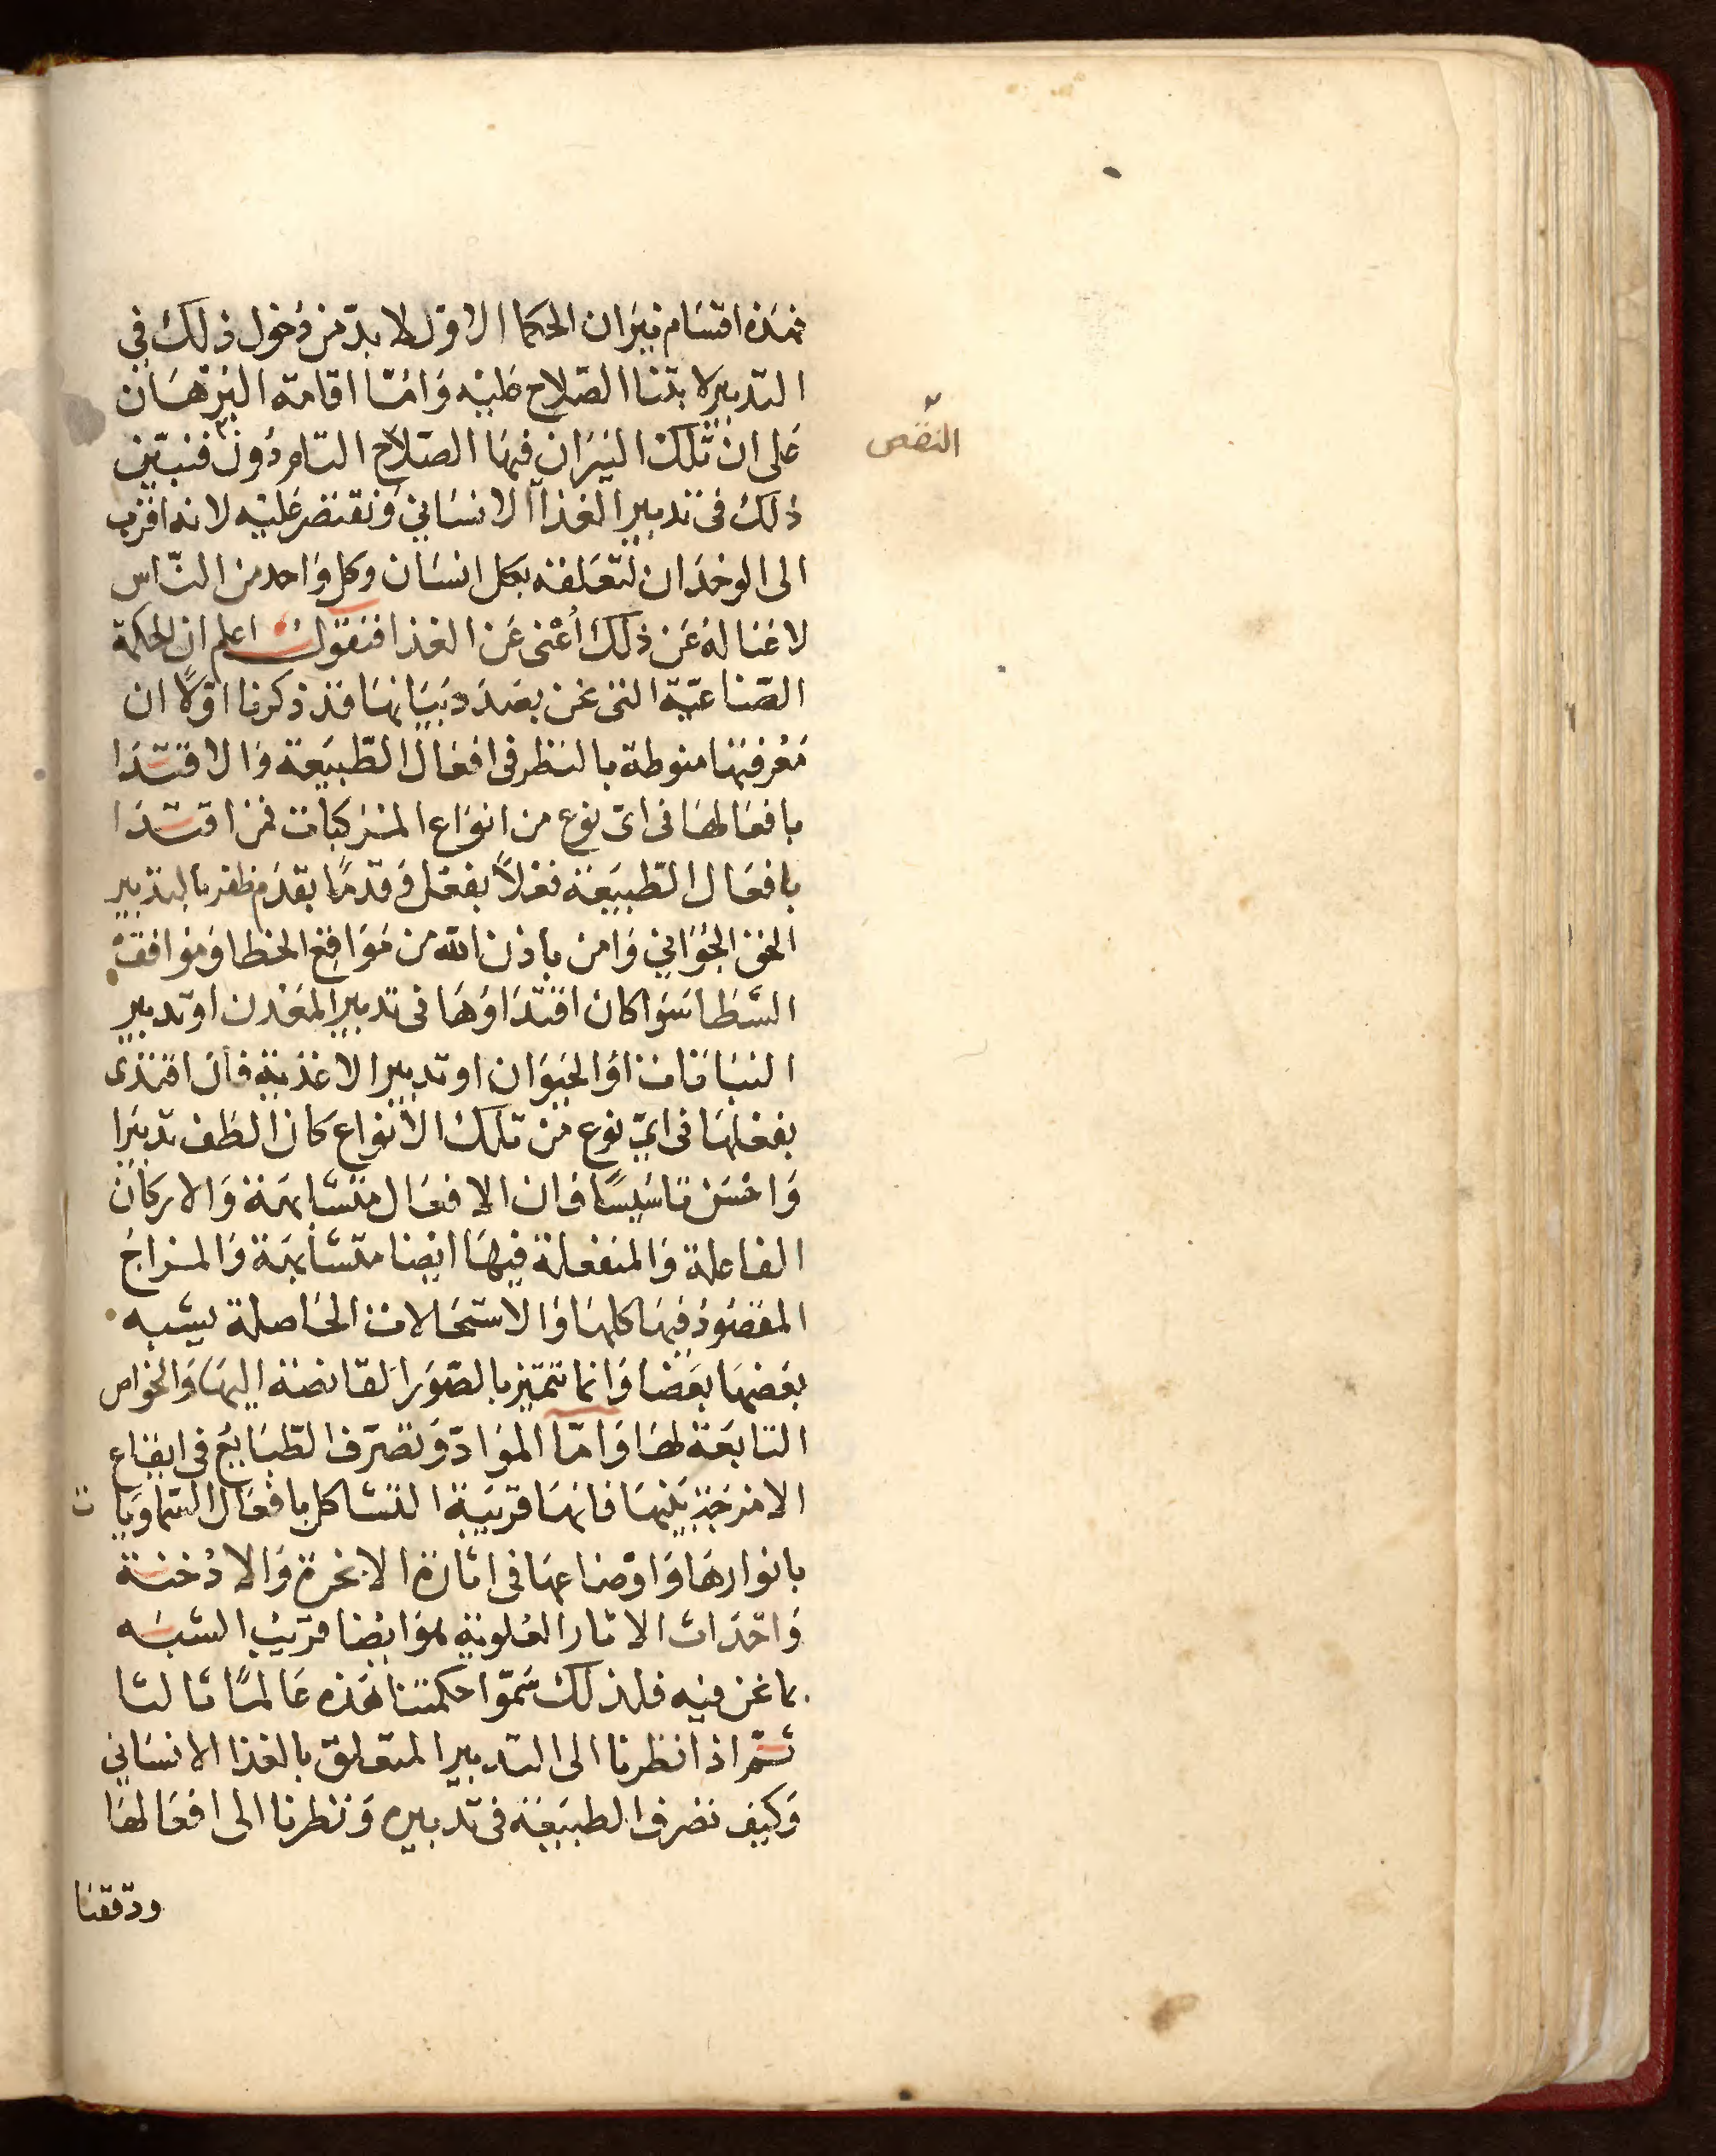 فهذه اقسام نيران الحكما الاول لا بد من دخول ذلك في
التدبير لابتنا الصلاح عليه وامّا اقامة البرهان
على ان تلك النيران فيها الصلاح التام دون فنبين
النقص
ذلك في تدبير الغذا الانساني ونقتصر عليه لانه اقرب
الى الوجدان لتعلقه بكل انسان وكل واحد من النّاس
لا غنا له عن ذلك اعني عن الغذا فنقول اعلم ان الحكمة
الصّناعيّة التي نحن بصدد بيانها قد ذكرنا اوّلاً ان
معرفتها منوطة بالنظر في افعال الطّبيعة والاقتدا
بافعالها في اى نوع من انواع المركبات فمن اقتدا
بافعال الطّبيعة فعلاً بفعل وقدمًا بقدم ظفر بالتدبير
الحق الجوّاني وامن باذن الله من مواقع الخطا وموافقة
السّطا سوا كان اقتداوها في تدبير المعدن او تدبير
النباتات او الحيوان او تدبير الاغذية فان اقتدى
بفعلها في ايّ نوع من تلك الانواع كان الطف تدبيرا
واحسن تاسيسًا فان الافعال متشابهة والاركان
الفاعلة والمنفعلة فيها ايضا متشابهة والمزاج
المقصود فيها كلها والاستحالات الحاصلة يشبه
بعضها بعضا وانما تتميز بالصّور الفائضة اليها والخواص
التابعة لها وامّا الموادّ وتصرّف الطّبايع في ايقاع
الامزجة بينها فانها قريبة التشاكل بافعال السّماويات
بانوارها واوضاعها في اثارة الابخرة والادخنة
واحداث الاثار العلوية هو ايضا قريب الشبه
بما نحن فيه فلذلك سمّوا حكمتنا هذه عالمًا ثالثا
ثم اذا نظرنا الى التدبير المتعلق بالغذا الانساني
وكيف تصرف الطبيعة في تدبيره ونظرنا الى افعالها
ودققنا